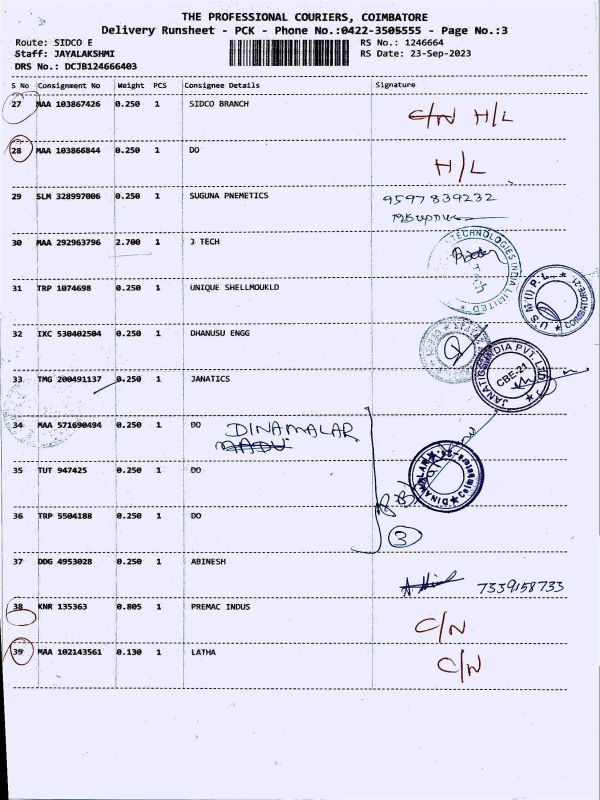 THE PROFESSIONAL COURIERS, COIMBATORE
Delivery Runsheet - PCK - Phone No.:0422-3505555 - Page No.:3
Route: SIDCO E RS No.: 1246664
Staff: JAYALAKSHMI RS Date: 23-Sep-2023
DRS No.: DCJB124666403
S No Consignment No Weight PCS Consignee Details Signature
27 MAA 103867426 0.250 1 SIDCO BRANCH C/N H/L
28 MAA 103866844 0.250 1 DO H/L
29 SLM 328997006 0.250 1 SUGUNA PNEMETICS 9597839232
30 MAA 292963796 2.700 1 J TECH
TECHNOLOGIES INDIA LIMITED
31 TRP 1074698 0.250 1 UNIQUE SHELLMOUKLD
U S M (I) P. L. COIMBATORE-21
32 IXC 530402504 0.250 1 DHANUSU ENGG
33 TMG 200491137 0.250 1 JANATICS
JANATICS INDIA PVT. LTD CBE-21
34 MAA 571690494 0.250 1 DO DINAMALAR
35 TUT 947425 0.250 1 DO
DINAMALAR Coimbatore
36 TRP 5504188 0.250 1 DO 3
37 DDG 4953028 0.250 1 ABINESH 7339158733
38 KNR 135363 0.805 1 PREMAC INDUS C/N
39 MAA 102143561 0.130 1 LATHA C/N